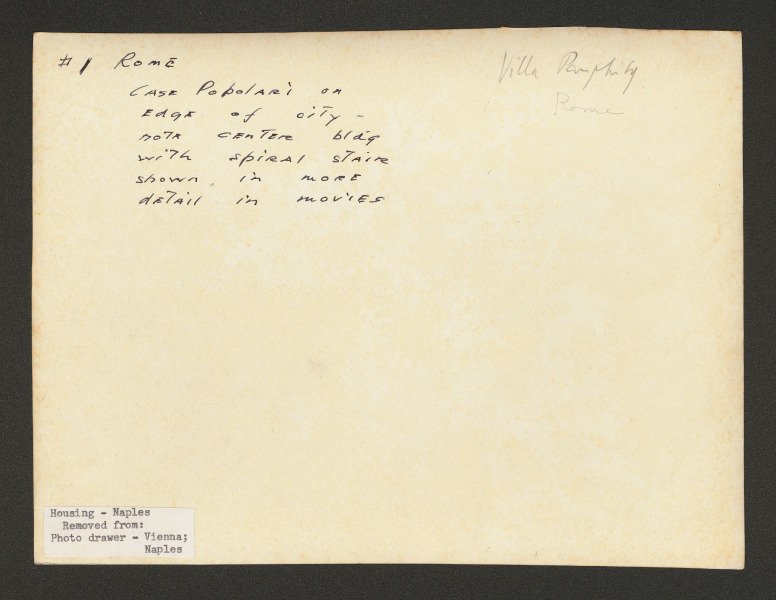 # 1 Rome
Case Popolari on
edge of city -
note center bldg
with spiral stair
shown in more
detail in movies
Villa Pamphily
Rome
Housing - Naples
Removed from:
Photo drawer - Vienna;
Naples